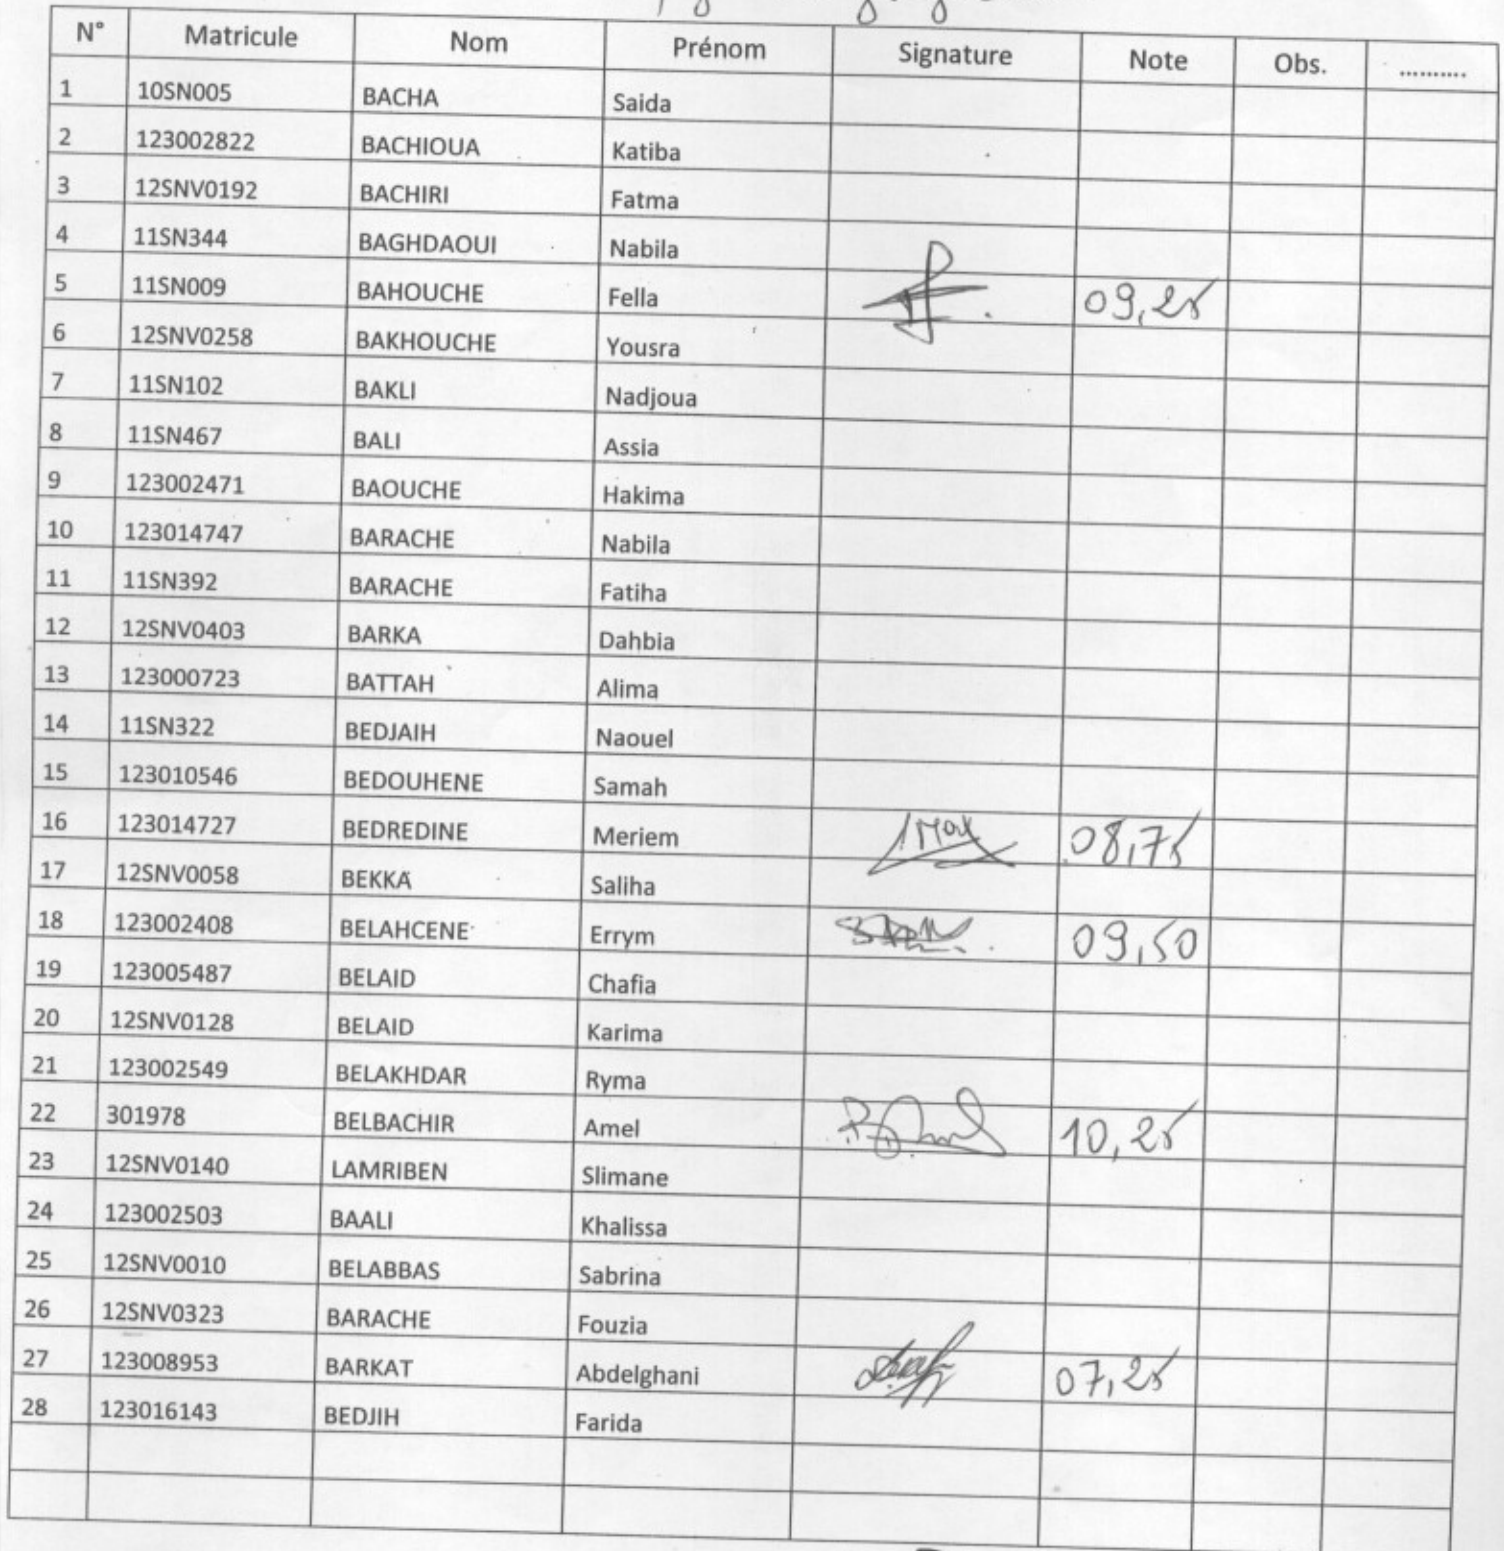 N° Matricule Nom Prénom Signature Note Obs. ..........
1 10SN005 BACHA Saida
2 123002822 BACHIOUA Katiba
3 12SNV0192 BACHIRI Fatma
4 11SN344 BAGHDAOUI Nabila
5 11SN009 BAHOUCHE Fella 09,25
6 12SNV0258 BAKHOUCHE Yousra
7 11SN102 BAKLI Nadjoua
8 11SN467 BALI Assia
9 123002471 BAOUCHE Hakima
10 123014747 BARACHE Nabila
11 11SN392 BARACHE Fatiha
12 12SNV0403 BARKA Dahbia
13 123000723 BATTAH Alima
14 11SN322 BEDJAIH Naouel
15 123010546 BEDOUHENE Samah
16 123014727 BEDREDINE Meriem 08,75
17 12SNV0058 BEKKA Saliha
18 123002408 BELAHCENE Errym 09,50
19 123005487 BELAID Chafia
20 12SNV0128 BELAID Karima
21 123002549 BELAKHDAR Ryma
22 301978 BELBACHIR Amel 10,25
23 12SNV0140 LAMRIBEN Slimane
24 123002503 BAALI Khalissa
25 12SNV0010 BELABBAS Sabrina
26 12SNV0323 BARACHE Fouzia
27 123008953 BARKAT Abdelghani 07,25
28 123016143 BEDJIH Farida